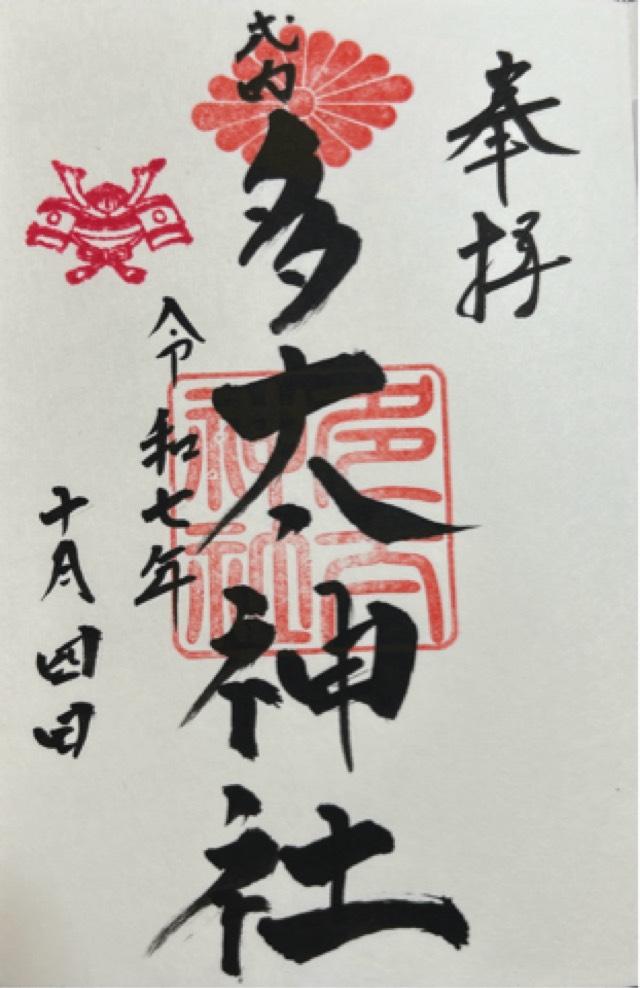 奉拝
式内
多太神社
多太神社
令和七年
十月四日